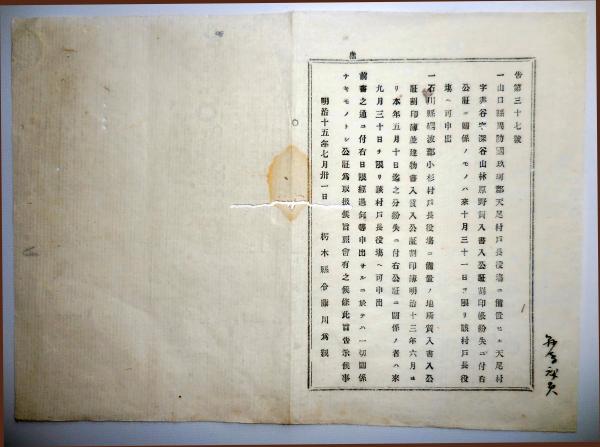 告第三十七號
一山口縣周防國玖珂郡天尾村戸長役塲ニ備置セル天尾村
字井谷字深谷山林原野質入書入公証割印帳紛失ニ付右
公証ニ關係ノモノハ來十月三十一日ヲ限リ該村戸長役
塲ヘ可申出
一石川縣礪波郡小杉村戸長役塲ニ備置ノ地所質入書入公
証割印簿並建物書入質入公証割印簿明治十三年六月ヨ
リ本年五月十日迄之分紛失ニ付右公証ニ關係ノ者ハ來
九月三十日ヲ限リ該村戸長役塲ヘ可申出
前書之通ニ付右日限經過何等申出サルニ於テハ一切關係
ナキモノトシ公証爲取扱候旨照會有之候條此旨告示候事
明治十五年七月卅一日 栃木縣令藤川爲親